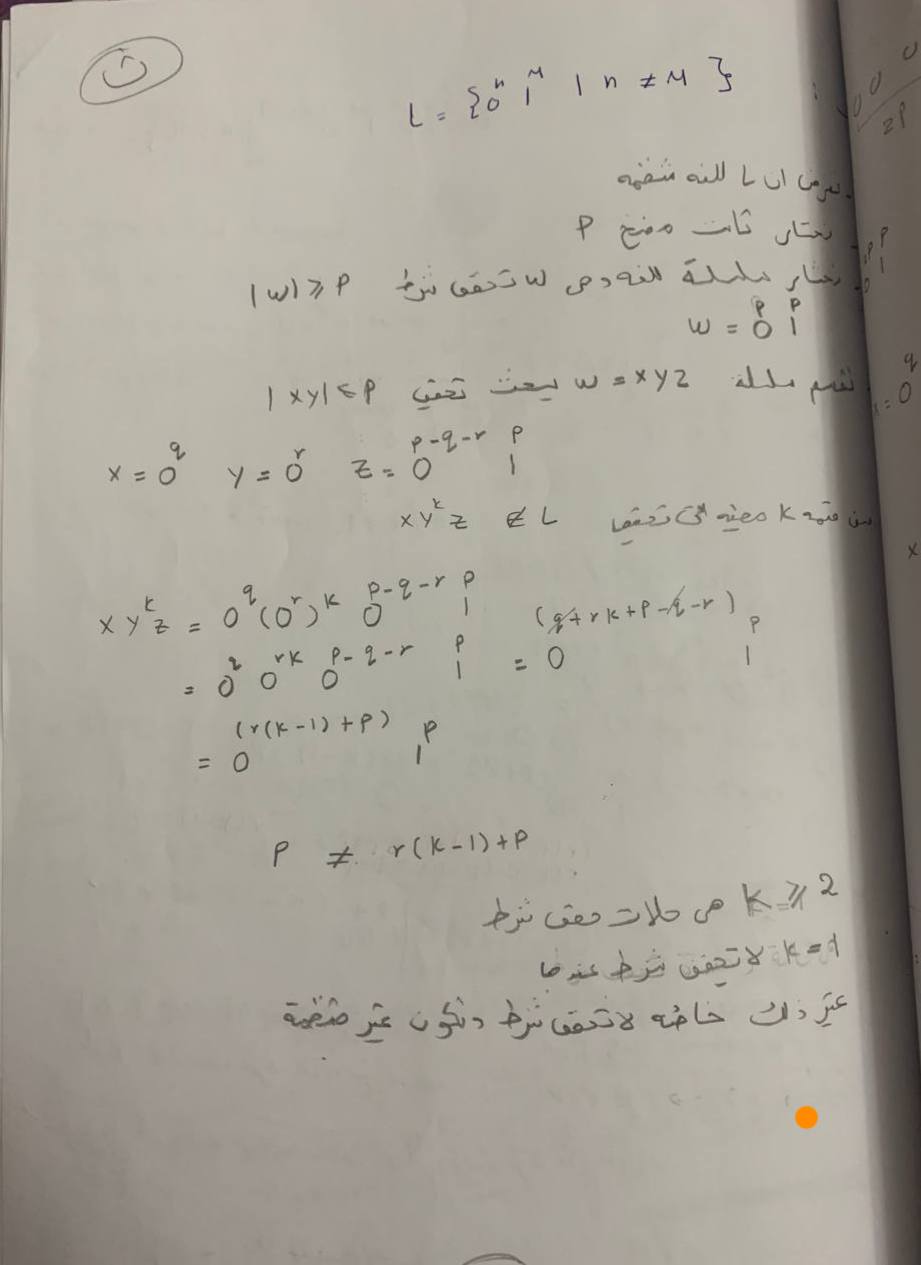 ن
L = {0ⁿ 1ᴹ | n ≠ M}
نفرض ان L للغه منتظمه
نختار ثابت ضخ P
نختار سلسلة للغه وهي w تحقق شرط |w| ⩾ P
w = 0ᴾ 1ᴾ
نقسم سلسلة w = xyz بحيث تحقق |xy| ≤ P
x = 0^q y = 0^r z = 0^(p-q-r) 1^p
قيمه k معينه التي تحقق xy^k z ∉ L
xy^k z = 0^q (0^r)^k 0^(p-q-r) 1^p
= 0^q 0^(rk) 0^(p-q-r) 1^p = 0^(q+rk+p-q-r) 1^p
= 0^(r(k-1)+p) 1^p
P ≠ r(k-1)+P
k ⩾ 2 هي حالات تحقق شرط
k=1 لا تحقق شرط عندما
غير ذلك خاصه لا تحقق شرط وتكون غير منتظمة